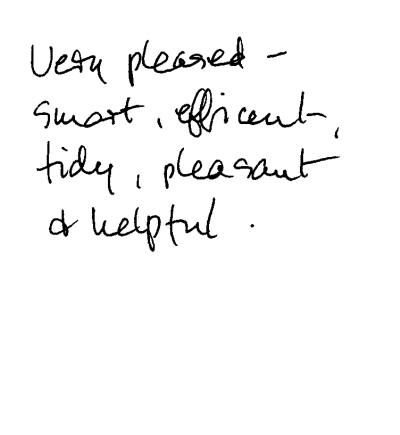 Very pleased -
smart, efficent,
tidy, pleasant
& helpful.